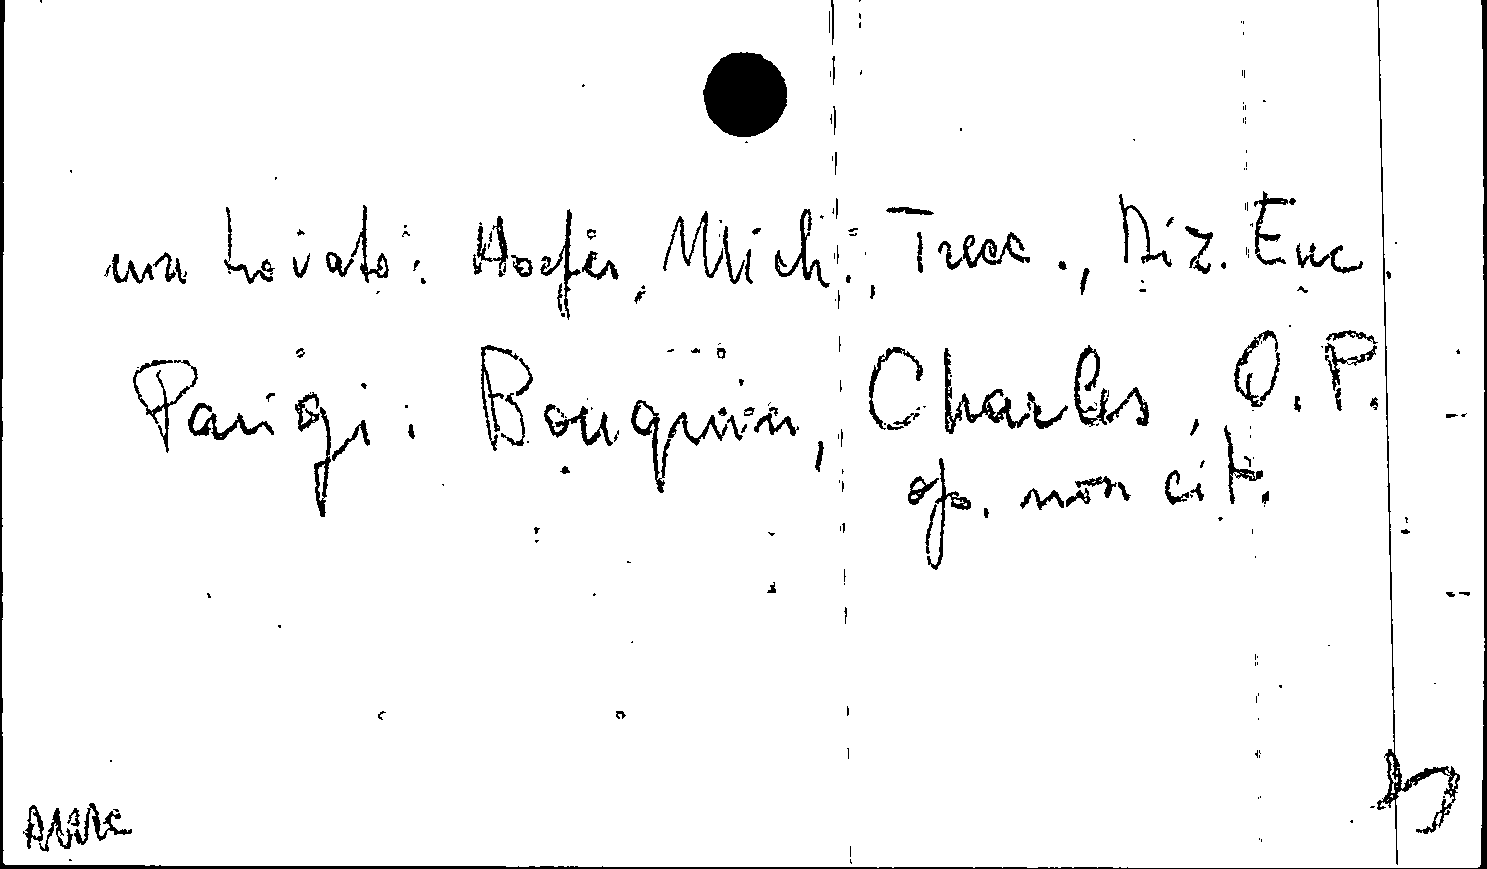 non trovato: Hoefer, Mich., Trecc., Diz. Enc.
Parigi: Bouquin, Charles, O.P.
op. non cit.